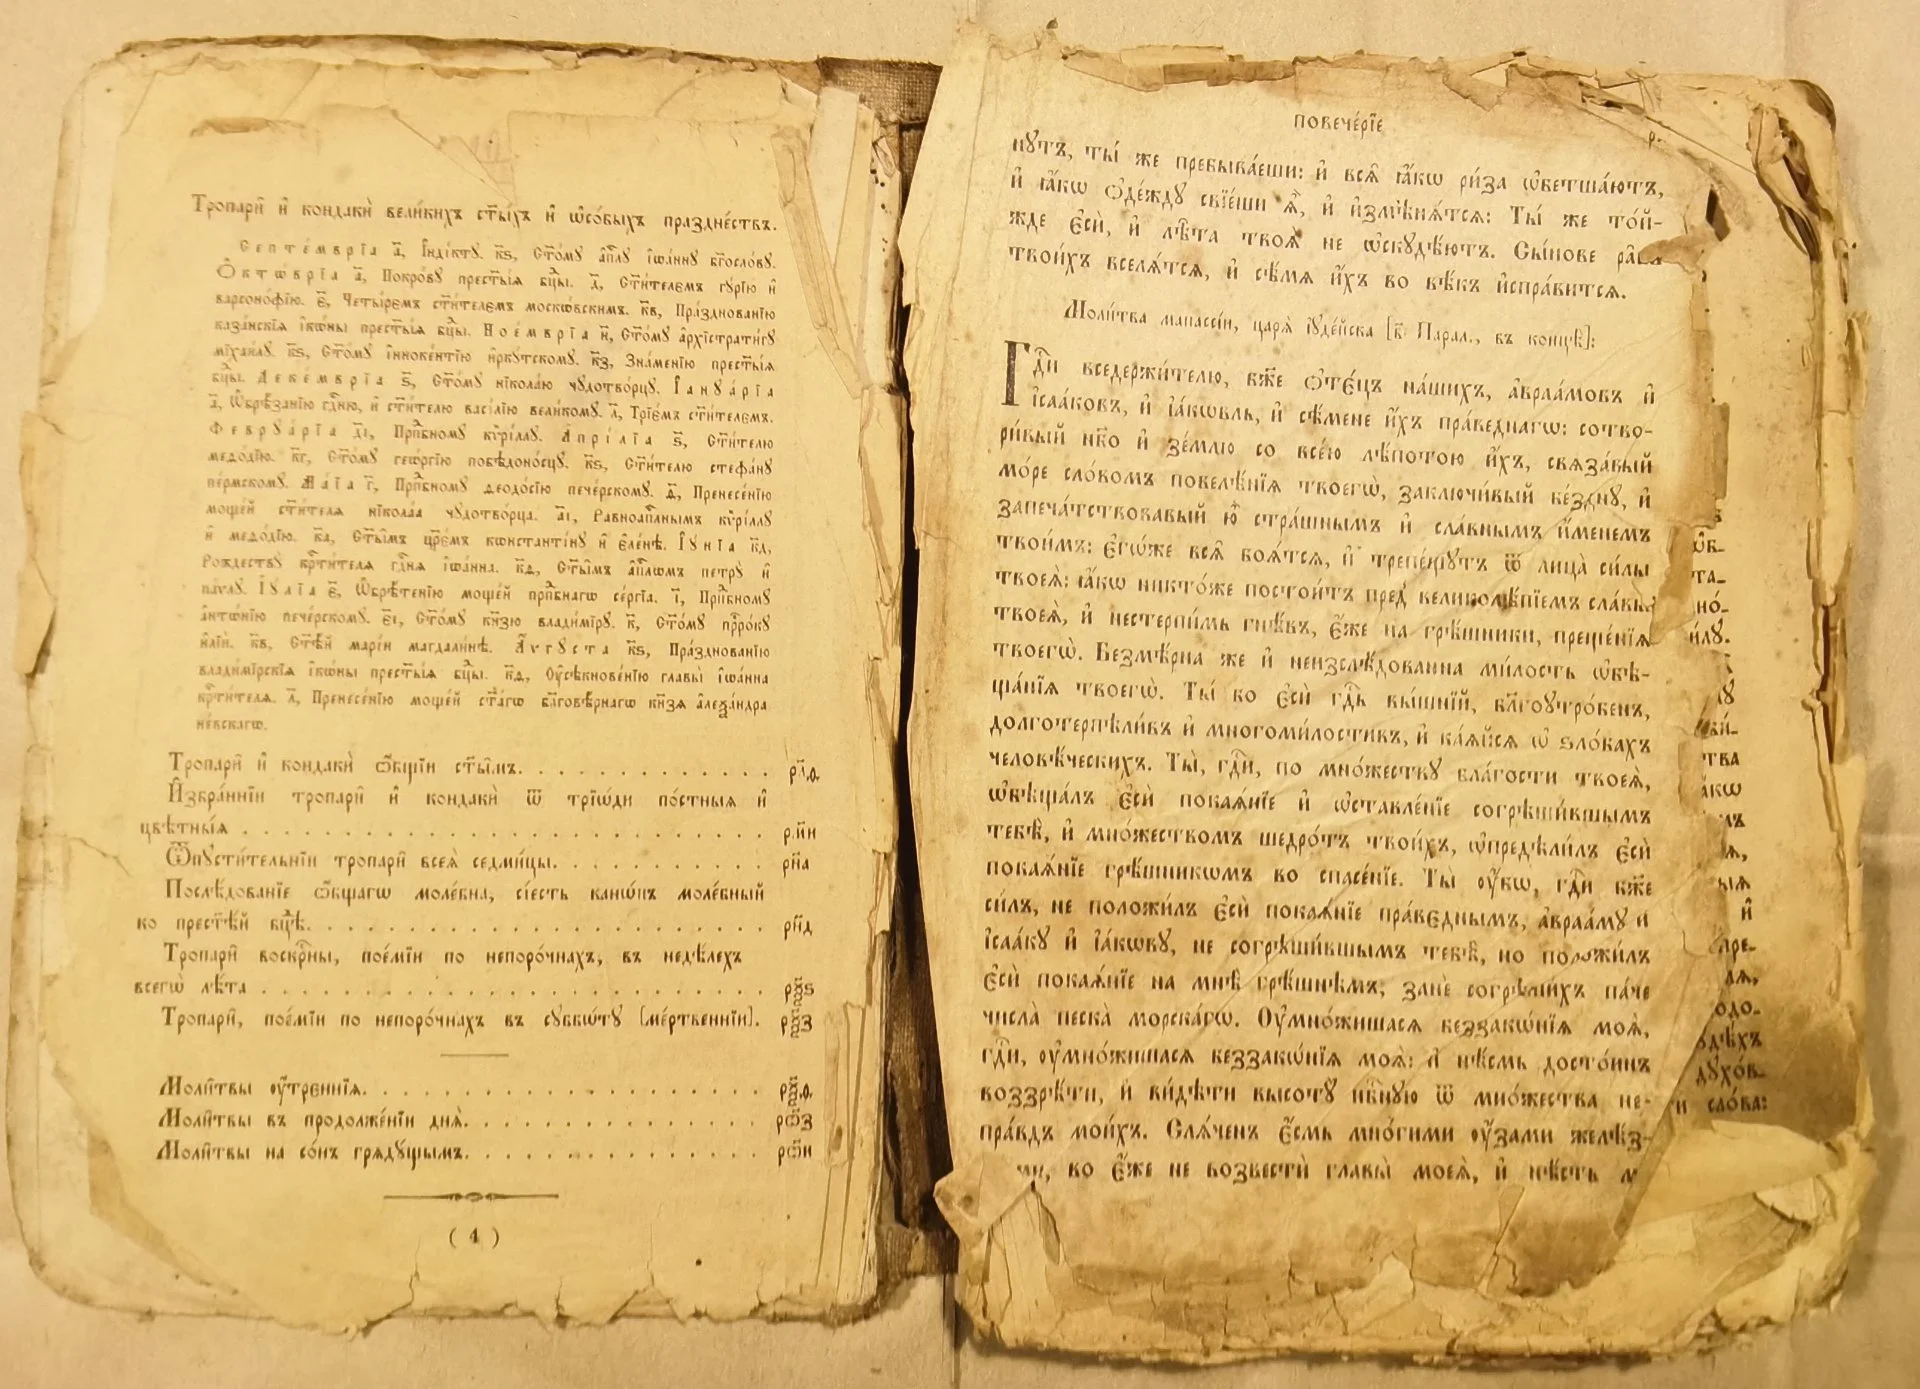 Тропари̑ и҆ кондаки̑ вели́кихъ ст҃ы́хъ и҆ ѡ҆со́быхъ пра́зднествъ.
Септе́мврїа а҃, І҆ндїкту. к҃ѕ, Ст҃о́му а҆пⷭ҇лу і҆ѡа́нну бг҃осло́ву.
Ѻ҆ктѡ́врїа а҃, Покро́ву прест҃ы́ѧ бцⷣы. д҃, Ст҃и́телємъ гꙋ́рїю и҆
варсоно́фїю. є҃, Четы́ремъ ст҃и́телємъ моско́вскимъ. к҃в, Пра́зднованїю
каза́нскїѧ і҆кѡ́ны прест҃ы́ѧ бцⷣы. Ное́мврїа и҃, Ст҃о́му а҆рхїстрати́гу
мїхаи́лу. к҃ѕ, Ст҃о́му і҆нноке́нтїю и҆ркꙋ́тскому. к҃з, Зна́менїю прест҃ы́ѧ
бцⷣы. Деке́мврїа ѕ҃, Ст҃о́му нїкола́ю чꙋдотво́рцу. І҆аннꙋа́рїа
а҃, Ѡ҆брѣ́занїю гдⷭ҇ню, и҆ ст҃и́телю васі́лїю вели́кому. л҃, Трїе́мъ ст҃и́телємъ.
Феврꙋа́рїа д҃і, Прпⷣбному кѷрі́ллу. А҆прі́лїа ѕ҃, Ст҃и́телю
меѳо́дїю. к҃г, Ст҃о́му гео́ргїю побѣдоно́сцу. к҃ѕ, Ст҃и́телю стефа́ну
пе́рмскому. Ма́їа г҃, Прпⷣбному ѳеодо́сїю пече́рскому. ѳ҃, Пренесе́нїю
моще́й ст҃и́телѧ нїкола́а чꙋдотво́рца. а҃і, Равноапⷭ҇льнымъ кѷрі́ллу
и҆ меѳо́дїю. к҃а, Ст҃ы̑мъ цр҃є́мъ кѡнстанті́ну и҆ є҆ле́нѣ. І҆ꙋ́нїа к҃д,
Рождествꙋ̀ крⷭ҇ти́телѧ гдⷭ҇нѧ і҆ѡа́нна. к҃ѳ, Ст҃ы̑мъ а҆пⷭ҇лѡмъ петрꙋ̀ и҆
па́ѵлу. І҆ꙋ́лїа є҃, Ѡ҆брѣ́тенїю моще́й прпⷣбнагѡ се́ргїа. і҃, Прпⷣбному
а҆нтѡ́нїю пече́рскому. є҃і, Ст҃о́му кн҃зю влади́міру. к҃, Ст҃о́му прⷪ҇ро́ку
и҆лїѝ. к҃в, Ст҃ѣ́й марі́и магдали́нѣ. А҆́ѵгꙋста к҃ѕ, Пра́зднованїю
влади́мірскїѧ і҆кѡ́ны прест҃ы́ѧ бцⷣы. к҃ѳ, Оу҆сѣкнове́нїю главы̀ і҆ѡа́нна
крⷭ҇ти́телѧ. л҃, Пренесе́нїю моще́й ст҃а́гѡ бл҃говѣ́рнагѡ кн҃зѧ а҆леѯа́ндра
не́вскагѡ.
Тропари̑ и҆ кондаки̑ ѻ҆́бщїи ст҃ы̑мъ. . . . . . . . . . . . . рл҃ѳ.
И҆збра́ннїи тропари̑ и҆ кондаки̑ ѿ трїѡ́ди по́стныѧ и҆
цвѣ́тныѧ . . . . . . . . . . . . . . . . . . . . . . . рм҃и
Ѿпꙋсти́тельнїи тропари̑ всеѧ̀ седми́цы. . . . . . . . . . . . рн҃а
Послѣ́дованїе ѻ҆́бщагѡ моле́бна, сїе́сть канѡ́нъ моле́бный
ко прест҃ѣ́й бцⷣѣ. . . . . . . . . . . . . . . . . . . . рн҃д
Тропари̑ воскрⷭ҇ны, пое́мїи по непоро́чнахъ, въ недѣ́лехъ
всегѡ̀ лѣ́та . . . . . . . . . . . . . . . . . . . . . . рѯ҃ѕ
Тропари̑, пое́мїи по непоро́чнахъ въ сꙋббѡ́ту [ме́ртвеннїи]. рѯ҃з
Моли̑твы оу҆́треннїѧ. . . . . . . . . . . . . . . . . . . рѯ҃ѳ.
Моли̑твы въ продолже́нїи днѧ̀. . . . . . . . . . . . . . . . рѻ҃з
Моли̑твы на со́нъ грѧдꙋ́щымъ. . . . . . . . . . . . . . . . рѻ҃и
( 4 )
повече́рїе
р.
нꙋтъ, ты́ же пребыва́еши: и҆ всѧ̑ ꙗ҆́кѡ ри́за ѡ҆бетша́ютъ,
и҆ ꙗ҆́кѡ ѻ҆де́ждꙋ свїе́ши ѧ҆̀, и҆ и҆змѣнѧ́тсѧ: Ты́ же то́й-
жде є҆сѝ, и҆ лѣ̑та твоѧ̑ не ѡ҆скꙋдѣ́ютъ. Сы́нове ра̑бъ
твои́хъ вселѧ́тсѧ, и҆ сѣ́мѧ и҆́хъ во вѣ́къ и҆спра́витсѧ.
Моли́тва манассі́и, царѧ̀ і҆ꙋде́йска [в҃ Парал., въ концѣ̀]:
Гдⷭ҇и вседержи́телю, бж҃е ѻ҆те́цъ на́шихъ, а҆враа́мовъ и҆
і҆саа́ковъ, и҆ і҆а́кѡвль, и҆ сѣ́мене и҆́хъ пра́веднагѡ: сотво-
ри́вый нб҃о и҆ зе́млю со все́ю лѣ́потою и҆́хъ, свѧза́вый
мо́ре сло́вомъ повелѣ́нїѧ твоегѡ̀, заключи́вый бе́зднꙋ, и҆
запеча́тствовавый ю҆̀ стра́шнымъ и҆ сла́внымъ и҆́менемъ
твои́мъ: є҆гѡ́же всѧ̑ боѧ́тсѧ, и҆ трепе́щꙋтъ ѿ лица̀ си́лы
твоеѧ̀: ꙗ҆́кѡ никто́же постои́тъ пред̾ великолѣ́пїемъ сла́вы
твоеѧ̀, и҆ нестерпи́мь гнѣ́въ, є҆́же на грѣ́шники, преще́нїѧ
твоегѡ̀. Безмѣ́рна же и҆ неизслѣ́дованна ми́лость ѡ҆бѣ-
ща́нїѧ твоегѡ̀. Ты́ бо є҆сѝ гдⷭ҇ь вы́шнїй, бл҃гоꙋтро́бенъ,
долготерпѣли́въ и҆ многоми́лостивъ, и҆ ка́ѧйсѧ ѡ҆ ѕло́бахъ
человѣ́ческихъ. Ты̀, гдⷭ҇и, по мно́жествꙋ бла́гости твоеѧ̀,
ѡ҆бѣща́лъ є҆сѝ покаѧ́нїе и҆ ѡ҆ставле́нїе согрѣши́вшымъ
тебѣ̀, и҆ мно́жествомъ щедро́тъ твои́хъ, ѡ҆предѣли́лъ є҆сѝ
покаѧ́нїе грѣ́шникѡмъ во спасе́нїе. Ты̀ оу҆̀бо, гдⷭ҇и бж҃е
си́лъ, не положи́лъ є҆сѝ покаѧ́нїе пра́вєднымъ, а҆враа́мꙋ и҆
і҆саа́кꙋ и҆ і҆а́кѡвꙋ, не согрѣши́вшымъ тебѣ̀, но положи́лъ
є҆сѝ покаѧ́нїе на мнѣ̀ грѣ́шнѣмъ, занѐ согрѣши́хъ па́че
числа̀ песка̀ морска́гѡ. Оу҆мно́жишасѧ беззакѡ́нїѧ моѧ̑,
гдⷭ҇и, оу҆мно́жишасѧ беззакѡ́нїѧ моѧ̑: и҆ нѣ́смь досто́инъ
воззрѣ́ти, и҆ ви́дѣти высотꙋ̀ нбⷭ҇нꙋю ѿ мно́жества не-
пра́вдъ мои́хъ. Слѧ́ченъ є҆́смь мно́гими оу҆́зами желѣ́з-
ми, во є҆́же не возвестѝ главы̀ моеѧ̀, и҆ нѣ́сть
ѡ҆б-
та-
но́-
и́лꙋ.
ви́-
тва
ꙗ҆́кѡ
и҆
пре-
одо-
дꙋхо́в-
и҆ сло́ва: